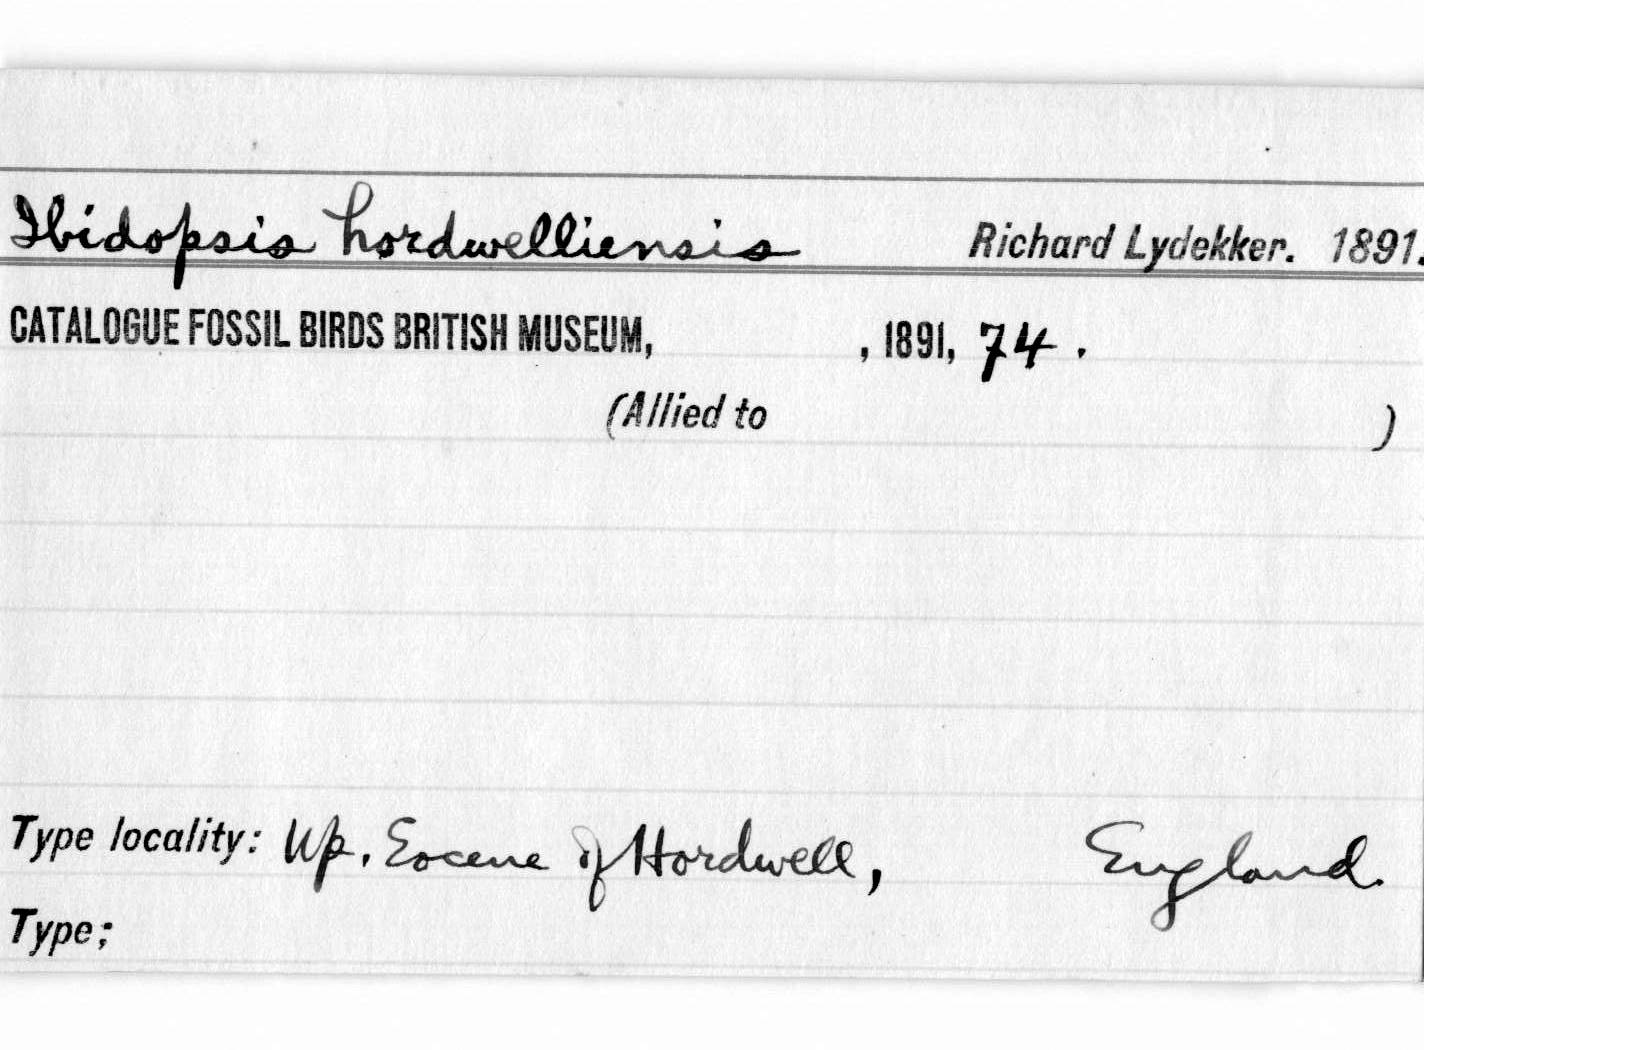 Ibidopsis hordwelliensis Richard Lydekker. 1891.
CATALOGUE FOSSIL BIRDS BRITISH MUSEUM, , 1891, 74.
(Allied to )
Type locality: Up. Eocene of Hordwell, England.
Type;